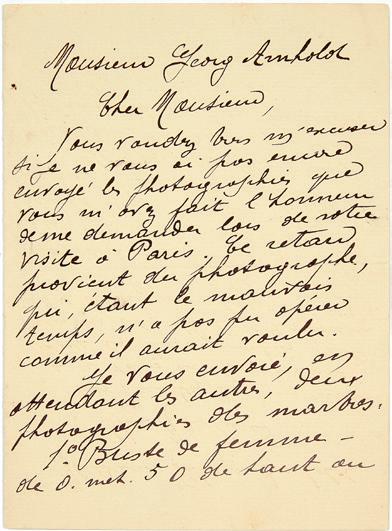 Monsieur Georg Arnholdt
Cher Monsieur,
Vous voudrez bien m'excuser
si je ne vous ai pas encore
envoyé les photographies que
vous m'avez fait l'honneur
de me demander lors de votre
visite à Paris. Ce retard
provient du photographe,
qui, étant le mauvais
temps, n'a pas pu opérer
comme il aurait voulu.
Je vous envoie, en
attendant les autres, deux
photographies des marbres.
1º Buste de femme –
de 0. met. 50 de haut au